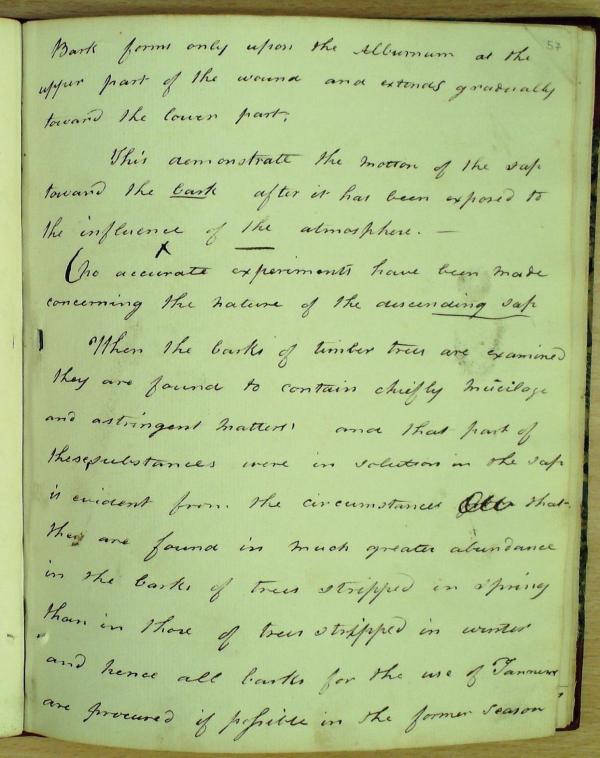 57
Bark forms only upon the Alburnum at the
upper part of the wound and extends gradually
toward the lower part.
This demonstrate the motion of the sap
toward the bark after it has been exposed to
the influence of the atmosphere. —
(no accurate experiments have been made
concerning the nature of the descending sap
When the barks of timber trees are examined
they are found to contain chiefly mucilage
and astringent matters and that part of
these substances were in solution in the sap
is evident from the circumstances that
they are found in much greater abundance
in the barks of trees stripped in spring
than in those of trees stripped in winter
and hence all barks for the use of Tanners
are procured if possible in the former season